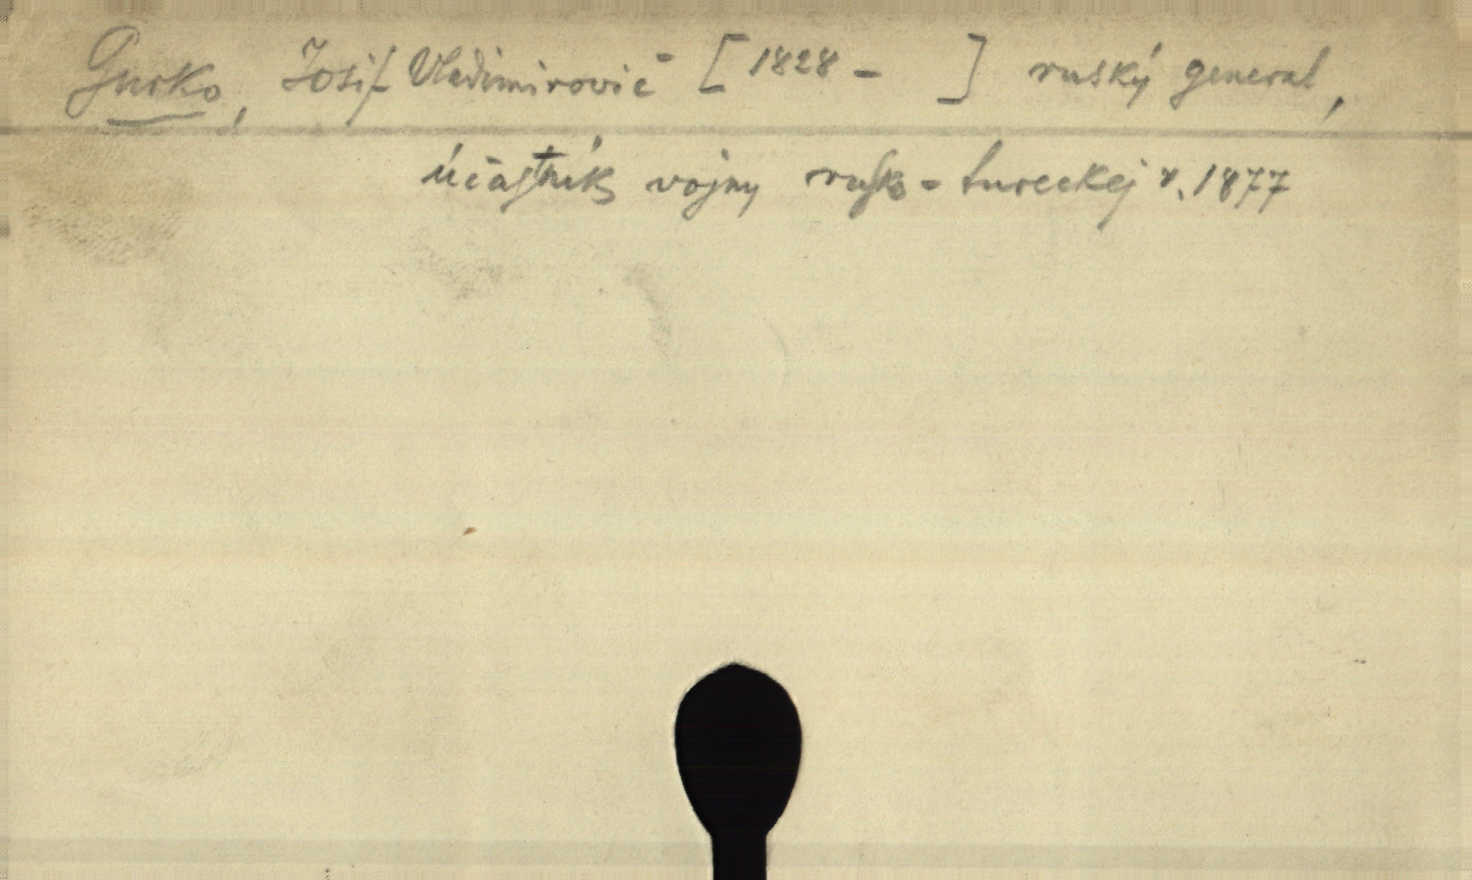 Gurko, Josif Vladimirovič [1828 -      ] ruský general,
účastník vojny rusko-tureckej r. 1877